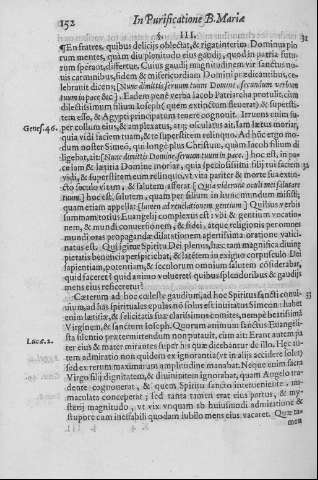 152 In Purificatione B. Mariæ
§. III. 31
¶En fratres, quibus delicijs oblectat, & rigat interim Dominus pio
rum mentes, quàm diu plenitudo eius gaudij, quod in patria futu
rum sperant, differtur. Cuius gaudij magnitudinem vir sanctus no-
uis carminibus, fidem & misericordiam Domini prædicantibus, ce-
lebrauit dicens; [Nunc dimittis seruum tuum Domine, secundum verbum
tuum in pace &c.] Eadem penè verba Iacob Patriarcha protulit, cùm
dilectissimum filium Ioseph (quem extinctum fleuerat) & supersti-
tem esse, & Ægypti principatum tenere cognouit. Irruens enim su-
Genes. 46. per collum eius, & amplexatus, atq; osculatus ait, Iam lætus moriar,
quia vidi faciem tuam, & te superstitem relinquo. Ad hūc ergo mo-
dum noster Simeō, qui longè plus Christum, quàm Iacob filium di
ligebat, ait; [Nunc dimittis Domine seruum tuum in pace.] hoc est, in pa-
ce iam & lætitia Domine moriar, quia speciosissimā filij tui faciem 32
vidi, & superstitem eum relinquo, vt vita pariter & morte sua extin-
cto sæculo vitam, & salutem afferat. [Quia viderunt oculi mei salutare
tuum] hoc est, salutem, quam per filium in hunc mundum misisti;
quam etiam appellat [lumen ad reuelationem gentium] Quibus verbis
summam totius Euangelij complexus est: vbi & gentium vocatio-
nem, & mundi conuersionem, & fidei, atque religionis per omnes
mundi oras propagandæ dilatationem apertissima oratione vatici-
natus est. Qui igitur Spiritu Dei plenus, hæc tam magnifica diuinę
pietatis beneficia perspiciebat, & latētem in exiguo corpusculo Dei
sapientiam, potentiam, & seculorum omnium salutem cōsiderabat,
quid faceret? quid animo volueret? quibus splendoribus & gaudijs
mens eius reficeretur?
Cæterùm ad hoc cælestе gaudium, ad hoc Spiritus sancti conui- 33
uium, ad has spirituales epulas nō solus est inuitatus Simeon: habet
enim lætitiæ, & felicitatis suæ clarissimos comites, nempè beatissimā
Virginem, & sanctum Ioseph. Quorum animum sanctus Euangeli-
sta silentio prætermittendum non putauit, cùm ait: Erant autem pa
Luca. 2. ter eius & mater mirantes super his quæ dicebantur de illo. Hęc au-
tem admiratio non quidem ex ignorantia (vt in alijs accidere solet)
sed ex rerum maximarum amplitudine manabat. Neque enim sacra
Virgo filij dignitatem, & diuinitatem ignorabat, quam Angelo tra-
dente cognouerat, & quem Spiritu sancto interueniente, im-
maculatè conceperat; sed tanta tamen erat eius partus, & my-
sterij magnitudo, vt vix vnquam ab huiusmodi admiratione &
stupore cum ineffabili quodam iubilo mens eius vacaret. Quæ ta-
men